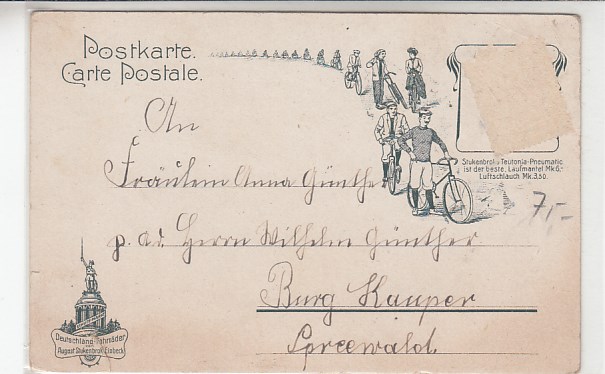 Postkarte.
Carte Postale.
An
Fräulein Anna Günther
p. ad. Herrn Wilhelm Günther
Burg Kauper
Spreewald.
Stukenbrok's Teutonia-Pneumatic
ist der beste. Laufmantel Mk.6,-
Luftschlauch Mk.3,50.
7,-
Deutschland-Fahrräder
August Stukenbrok Einbeck